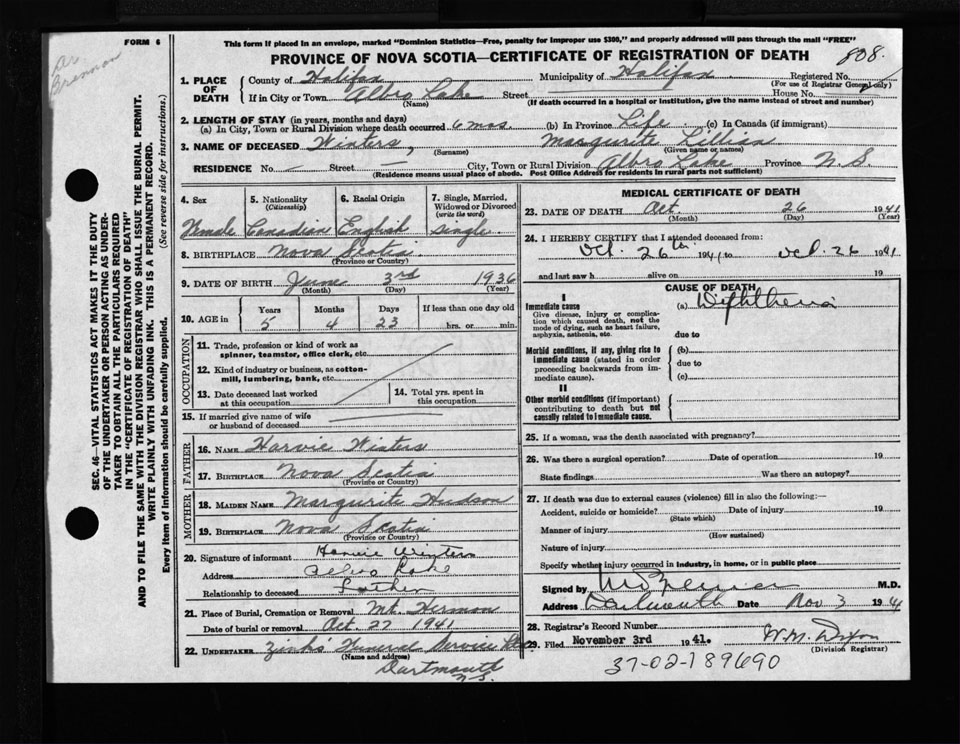 FORM 6
This form if placed in an envelope, marked "Dominion Statistics—Free, penalty for improper use $300," and properly addressed will pass through the mail "FREE"
PROVINCE OF NOVA SCOTIA—CERTIFICATE OF REGISTRATION OF DEATH
808.
Brennan
1. PLACE OF DEATH
County of Halifax Municipality of Halifax Registered No.
(For use of Registrar General only)
If in City or Town Albro Lake Street House No.
(Name) (If death occurred in a hospital or institution, give the name instead of street and number)
2. LENGTH OF STAY (in years, months and days)
(a) In City, Town or Rural Division where death occurred 6 mos. (b) In Province Life (c) In Canada (if immigrant)
3. NAME OF DECEASED Winters, Marguerite Lillian
(Surname) (Given name or names)
RESIDENCE No. — Street — City, Town or Rural Division Albro Lake Province N.S.
(Residence means usual place of abode. Post Office Address for residents in rural parts not sufficient)
4. Sex 5. Nationality (Citizenship) 6. Racial Origin 7. Single, Married, Widowed or Divorced (write the word)
Female Canadian English Single
8. BIRTHPLACE Nova Scotia
(Province or Country)
9. DATE OF BIRTH June 3rd 1936
(Month) (Day) (Year)
10. AGE in Years Months Days If less than one day old
5 4 23 hrs. or min.
OCCUPATION
11. Trade, profession or kind of work as spinner, teamster, office clerk, etc.
12. Kind of industry or business, as cotton-mill, lumbering, bank, etc.
13. Date deceased last worked at this occupation
14. Total yrs. spent in this occupation
15. If married give name of wife or husband of deceased
FATHER
16. NAME Harvie Winters
17. BIRTHPLACE Nova Scotia
(Province or Country)
MOTHER
18. MAIDEN NAME Margurite Hudson
19. BIRTHPLACE Nova Scotia
(Province or Country)
20. Signature of informant Harvie Winters
Address Albro Lake
Relationship to deceased Father
21. Place of Burial, Cremation or Removal Mt. Hermon
Date of burial or removal Oct. 27 1941
22. UNDERTAKER Zink's Funeral Service
(Name and address)
Dartmouth
N.S.
MEDICAL CERTIFICATE OF DEATH
23. DATE OF DEATH Oct. 26 1941
(Month) (Day) (Year)
24. I HEREBY CERTIFY that I attended deceased from:
Oct. 26th 1941 to Oct. 26 1941
and last saw h alive on 19
CAUSE OF DEATH
I
Immediate cause (a) Diphtheria
Give disease, injury or complication which caused death, not the mode of dying, such as heart failure, asphyxia, asthenia, etc.
due to
Morbid conditions, if any, giving rise to immediate cause (stated in order proceeding backwards from immediate cause).
(b)
due to
(c)
II
Other morbid conditions (if important) contributing to death but not causally related to immediate cause.
25. If a woman, was the death associated with pregnancy?
26. Was there a surgical operation? Date of operation 19
State findings Was there an autopsy?
27. If death was due to external causes (violence) fill in also the following:—
Accident, suicide or homicide? Date of injury 19
(State which)
Manner of injury
(How sustained)
Nature of injury
Specify whether injury occurred in industry, in home, or in public place
Signed by M.D.
Address Dartmouth Date Nov 3 1941
28. Registrar's Record Number
29. Filed November 3rd 1941. W.M. Dixon
(Division Registrar)
37-02-189690
SEC. 46—VITAL STATISTICS ACT MAKES IT THE DUTY
OF THE UNDERTAKER OR PERSON ACTING AS UNDER-
TAKER TO OBTAIN ALL THE PARTICULARS REQUIRED
IN THE "CERTIFICATE OF REGISTRATION OF DEATH"
AND TO FILE THE SAME WITH THE DIVISION REGISTRAR WHO SHALL ISSUE THE BURIAL PERMIT.
WRITE PLAINLY WITH UNFADING INK. THIS IS A PERMANENT RECORD.
Every item of information should be carefully supplied. (See reverse side for instructions.)